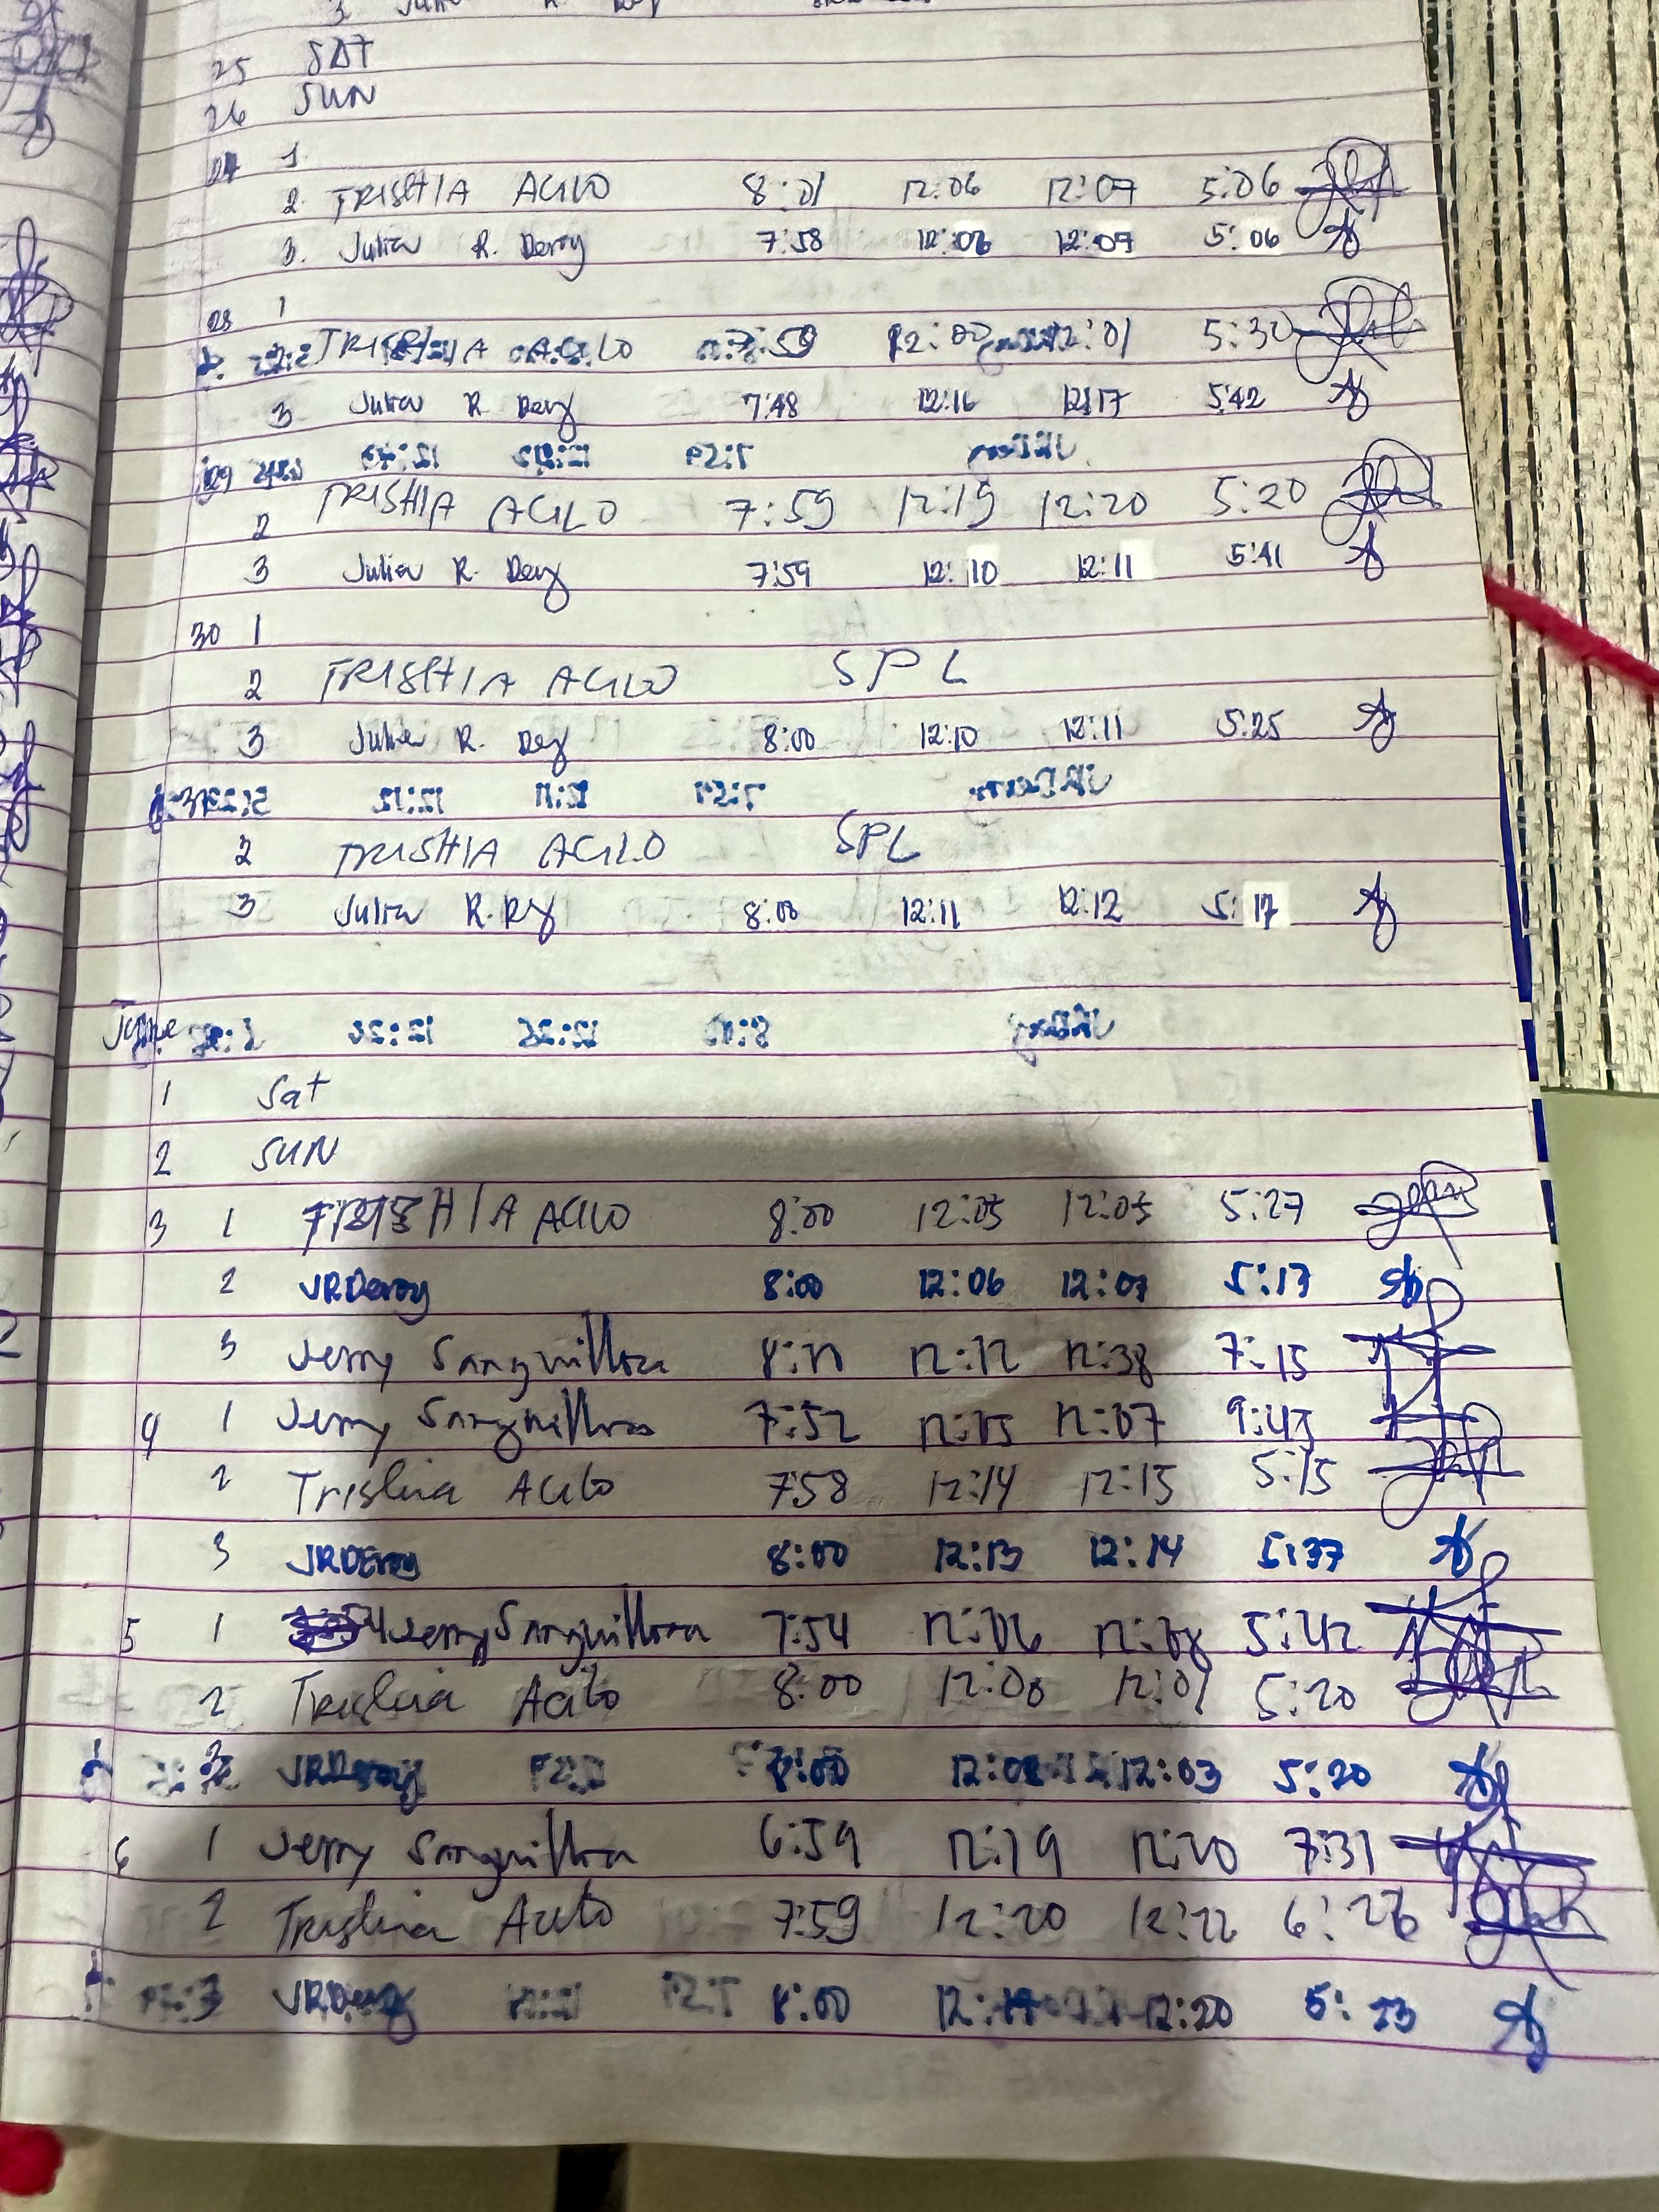 25 SAT
26 SUN
1
2 TRISHIA ACILO 8:01 12:06 12:07 5:06
3. Julia R. Deroy 7:58 12:06 12:07 5:06
28 1
TRISHIA ACILO 7:59 12:00 12:01 5:30
3 Julia R. Deroy 7:48 12:16 12:17 5:42
29
2 TRISHIA ACILO 7:59 12:19 12:20 5:20
3 Julia R. Deroy 7:59 12:10 12:11 5:41
30 1
2 TRISHIA ACILO SPL
3 Julia R. Deroy 8:00 12:10 12:11 5:25
31
2 TRISHIA ACILO SPL
3 Julia R. Deroy 8:00 12:11 12:12 5:17
June
1 Sat
2 SUN
3 1 TRISHIA ACILO 8:00 12:05 12:05 5:27
2 JRDeroy 8:00 12:06 12:07 5:17
3 Jerry Sanguillosa 8:11 12:12 12:38 7:15
4 1 Jerry Sanguillosa 7:52 12:05 12:07 9:45
2 Trishia Acilo 7:58 12:14 12:15 5:15
3 JRDeroy 8:00 12:13 12:14 5:37
5 1 Jerry Sanguillosa 7:54 12:06 12:08 5:42
2 Trishia Acilo 8:00 12:00 12:01 5:20
JRDeroy 8:00 12:02 12:03 5:20
6 1 Jerry Sanguillosa 6:59 12:19 12:20 7:31
2 Trishia Acilo 7:59 12:20 12:22 6:26
3 JRDeroy 8:00 12:19 12:20 5:23